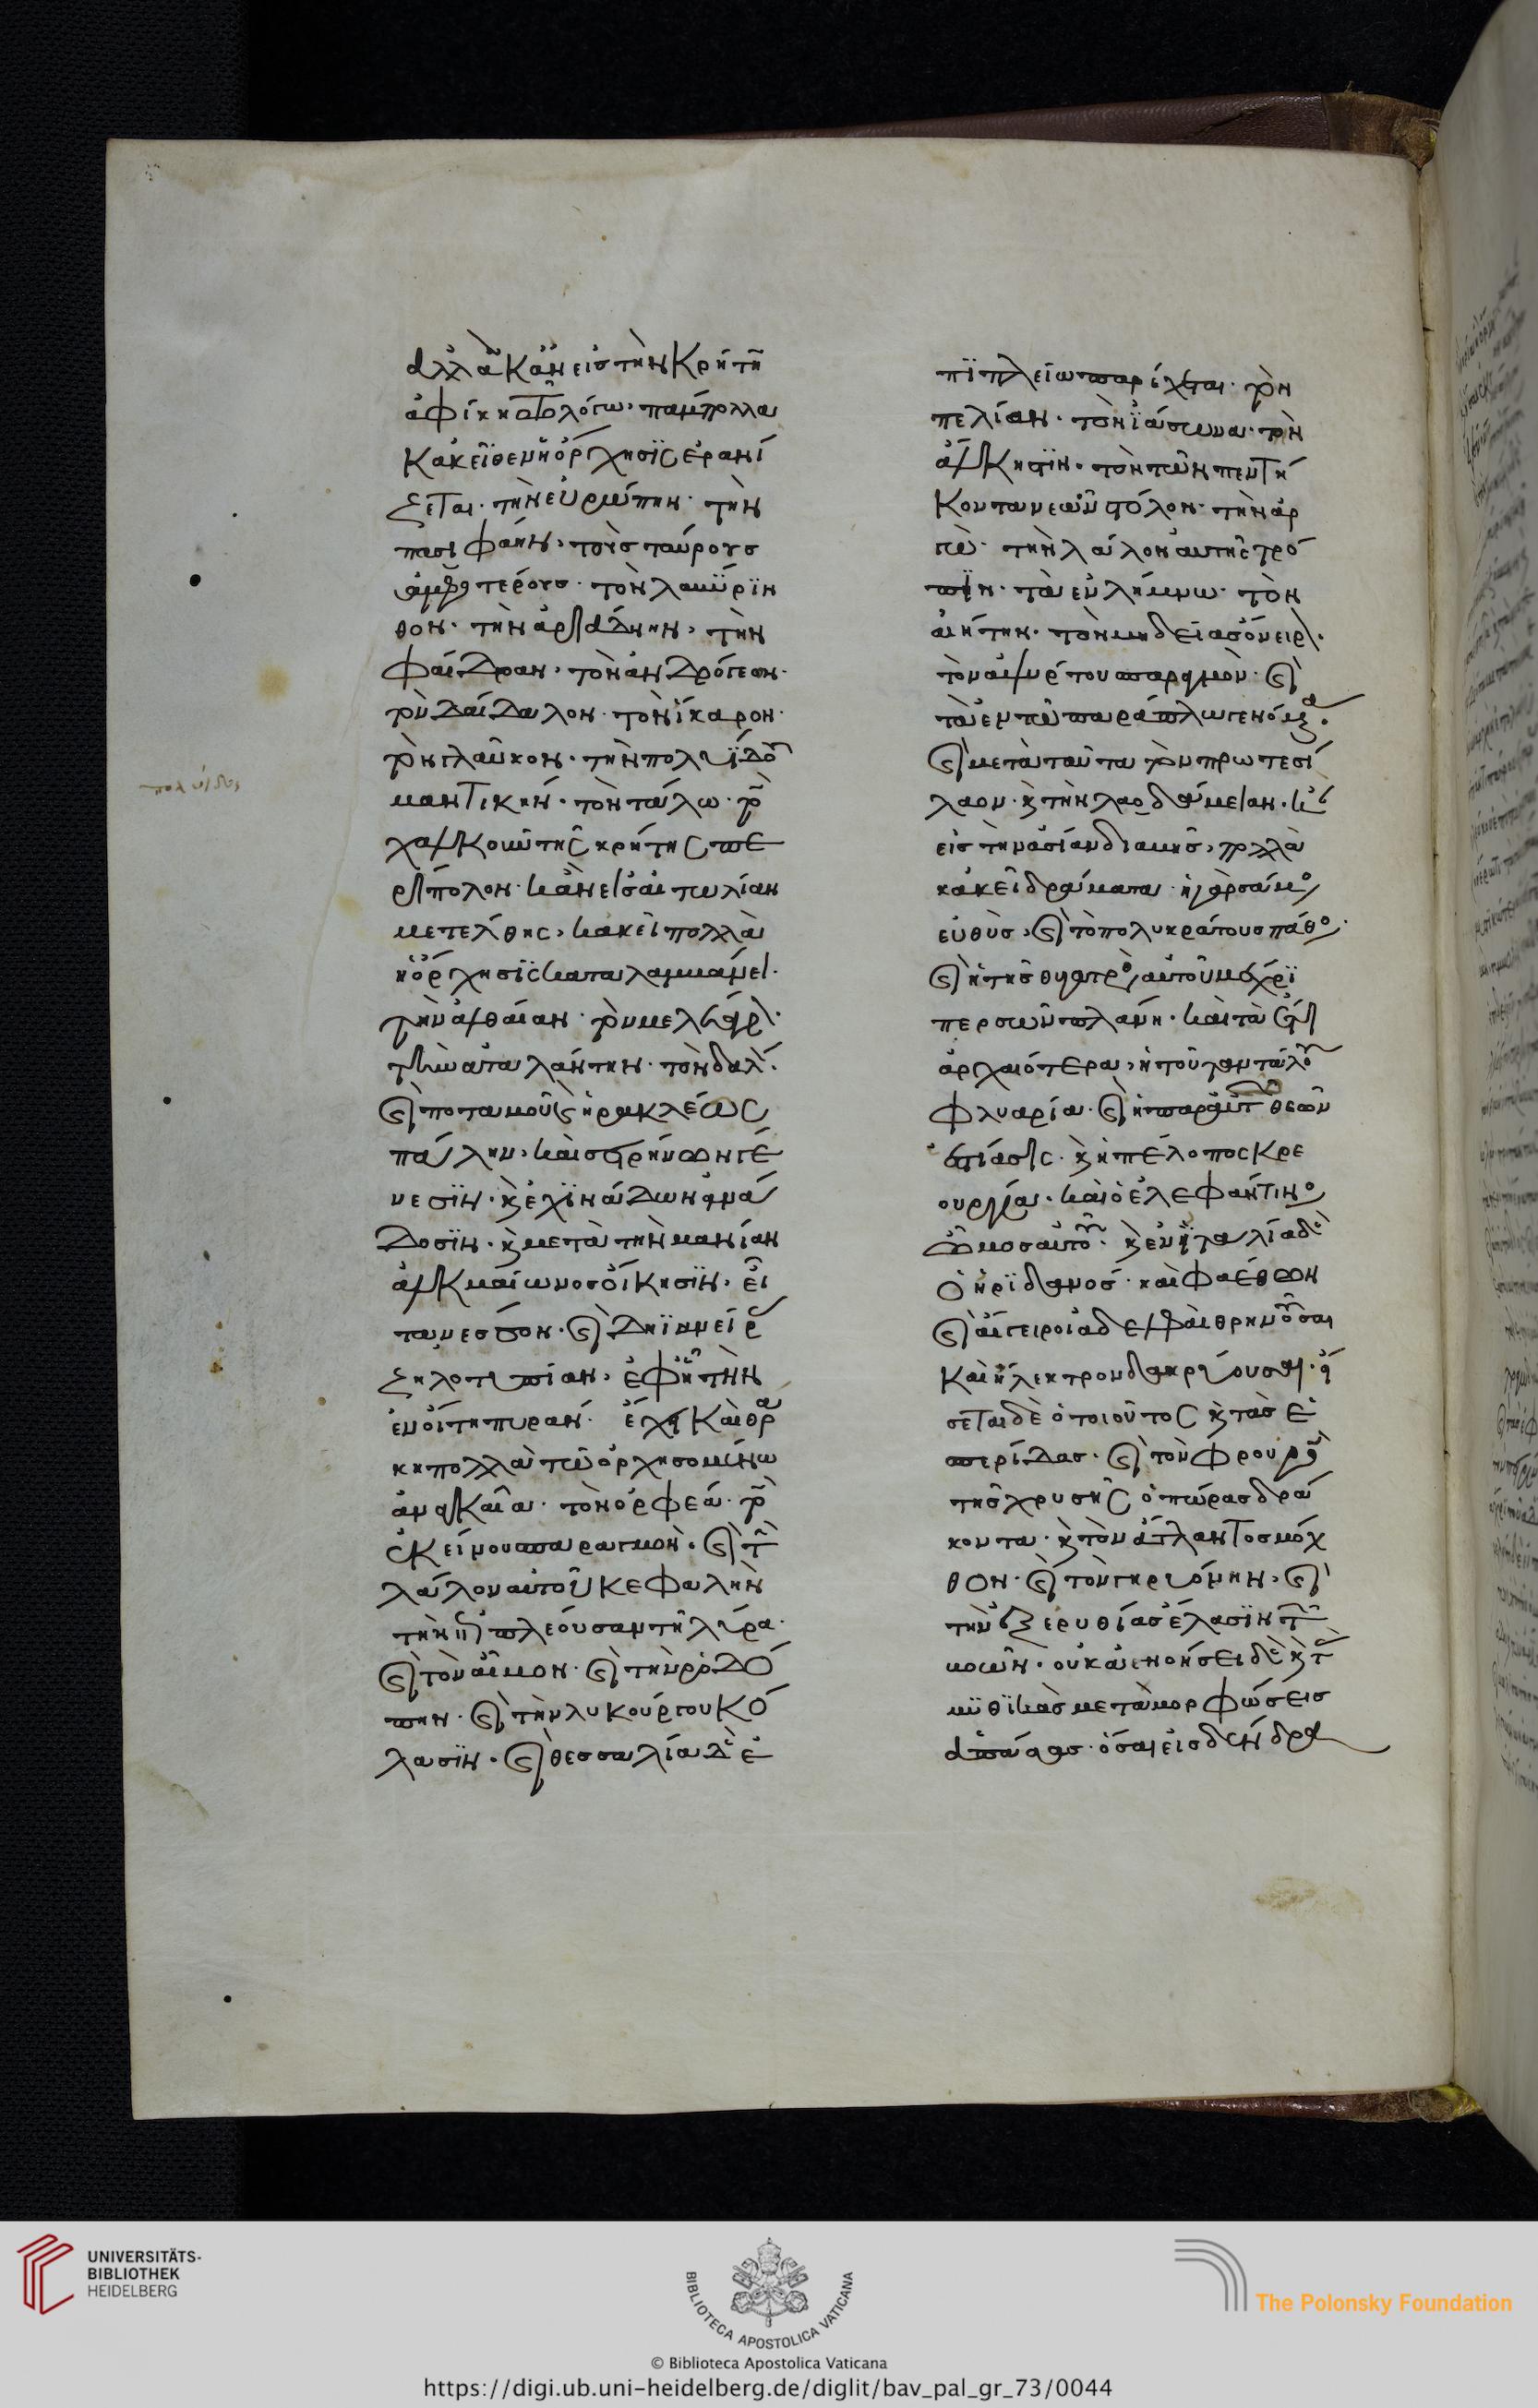 ἀλλὰ κἂν εἰς τὴν Κρήτην
ἀφίκη τῶ λόγω, πάμπολλα
κἀκεῖθεν ἡ ὄρχησις ἐρανί
ζεται. τὴν εὐρώπην. τὴν
πασιφάην, τοὺς ταύρους
ἀμφοτέρους. τὸν λαβύριν
θον. τὴν ἀριάδνην, τὴν
φαίδραν, τὸν ἀνδρόγεων.
τὸν δαίδαλον. τὸν ἴκαρον.
τὸν γλαῦκον. τὴν πολυΐδου
μαντικήν. τὸν τάλω. τὸν
χαλκοῦν τῆς κρήτης πε
ρίπολον. κἂν εἰς αἰτωλίαν
μετέλθης, κἀκεῖ πολλὰ
ἡ ὄρχησις καταλαμβάνει.
τὴν ἀλθαίαν. τὸν μελέαγρον.
τὴν ἀταλάντην. τὸν δαλόν.
καὶ ποταμοῦ καὶ ἡρακλέως
πάλην, καὶ σειρήνων γέ
νεσιν. καὶ ἐχινάδων ἀνά
δοσιν. καὶ μετὰ τὴν μανίαν
ἀλκμαίωνος οἴκησιν. εἶ
τα νέσσον. καὶ δηϊανείρας
ζηλοτυπίαν, ἐφ' ἧ τὴν
ἐν οἴτη πυράν. ἔχει καὶ θρά
κη πολλὰ τῶ ὀρχησομένω
ἀναγκαῖα. τὸν ὀρφέα. τὸν
ἐκείνου σπαραγμὸν. καὶ τὴν
λάλον αὐτοῦ κεφαλὴν
τὴν ἐπιπλέουσαν τῆ λύρα.
καὶ τὸν αἷμον. καὶ τὴν ῥοδό
πην. καὶ τὴν λυκούργου κό
λασιν. καὶ θεσσαλία δὲ ἐ
πὶ πλείω παρέχεται. τὸν
πελίαν. τὸν ἰάσωνα. τὴν
ἄλκηστιν. τὸν τῶν πεντή
κοντα νεῶν στόλον. τὴν ἀρ
γώ. τὴν λάλον αὐτῆς τρό
πιν. τὰ ἐν λήμνω. τὸν
αἰήτην. τὸν μηδείας ὄνειρον.
τὸν ἀψύρτου σπαραγμὸν. καὶ
τὰ ἐν τῶ παράπλω γενόμενα.
καὶ μετὰ ταῦτα τὸν πρωτεσί
λαον. καὶ τὴν λαοδάμειαν. κἂν
εἰς τὴν ἀσίαν διαβῆς, πολλὰ
κἀκεῖ δράματα. ἡ γὰρ σάμος
εὐθὺς, καὶ τὸ πολυκράτους πάθος.
καὶ ἡ τῆς θυγατρὸς αὐτοῦ μέχρι
περσῶν πλάνη. καὶ τὰ ἔτι
ἀρχαιότερα, ἡ τοῦ ταντάλου
φλυαρία. καὶ ἡ παρ' αὐτοῦ θεῶν
ἑστίασις. καὶ ἡ πέλοπος κρε
ουργία. καὶ ὁ ἐλεφάντινος
ὦμος αὐτοῦ. καὶ ἐν ἰταλία δὲ
ὁ ἠριδανός. καὶ φαέθων
καὶ αἴγειροι ἀδελφαὶ θρηνοῦσαι
καὶ ἤλεκτρον δακρύουσαι. εἴ
σεται δὲ ὁ τοιοῦτος καὶ τὰς ἑ
σπερίδας. καὶ τὸν φρουρὸν
τῆς χρυσῆς ὀπώρας δρά
κοντα. καὶ τὸν ἄτλαντος μόχ
θον. καὶ τὸν γηρυόνην. καὶ
τὴν ἐξ ἐρυθίας ἔλασιν τῶν
βοῶν. οὐκ ἀγνοήσει δὲ καὶ τὰς
μυθικὰς μεταμορφώσεις
ἁπάσας. ὅσαι εἰς δένδρα
πολυίδος
UNIVERSITÄTS-
BIBLIOTHEK
HEIDELBERG
BIBLIOTECA APOSTOLICA VATICANA
The Polonsky Foundation
© Biblioteca Apostolica Vaticana
https://digi.ub.uni-heidelberg.de/diglit/bav_pal_gr_73/0044